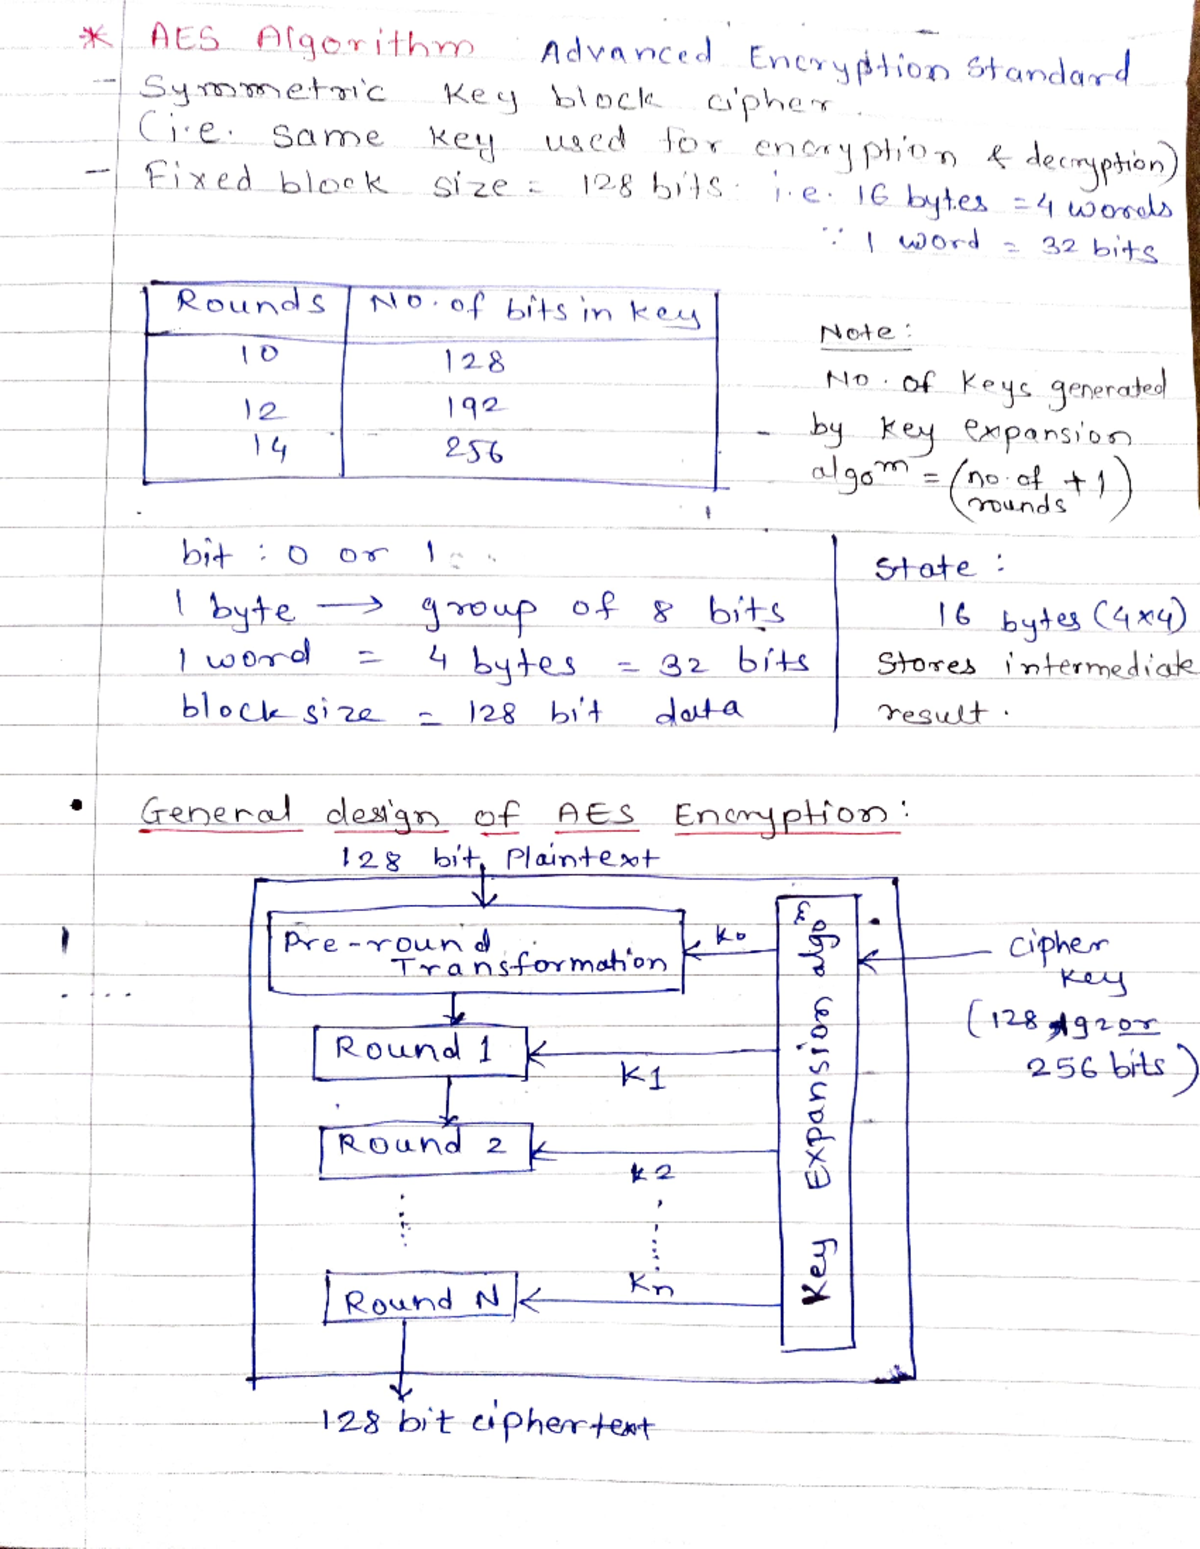 * AES Algorithm Advanced Encryption Standard
- Symmetric key block cipher.
(i.e. same key used for encryption & decryption)
- Fixed block size = 128 bits. i.e. 16 bytes = 4 words
∵ 1 word = 32 bits
Rounds | No. of bits in key
10 128
12 192
14 256
Note:
No. of keys generated
by key expansion
algom = (no. of rounds + 1)
bit : 0 or 1
1 byte → group of 8 bits
1 word = 4 bytes = 32 bits
block size = 128 bit data
State :
16 bytes (4x4)
Stores intermediate
result.
• General design of AES Encryption:
128 bit Plaintext
Pre-round
Transformation
K0
Round 1
K1
Round 2
K2
Round N
Kn
Key Expansion algom
cipher
key
(128, 192 or
256 bits)
128 bit ciphertext